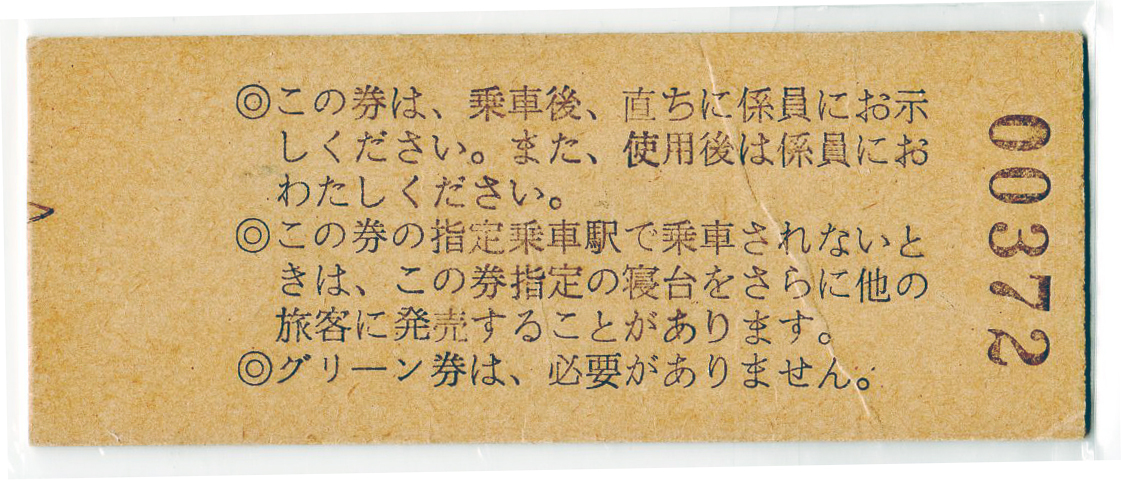 ◎この券は、乗車後、直ちに係員にお示
しください。また、使用後は係員にお
わたしください。
◎この券の指定乗車駅で乗車されないと
きは、この券指定の寝台をさらに他の
旅客に発売することがあります。
◎グリーン券は、必要がありません。
00372